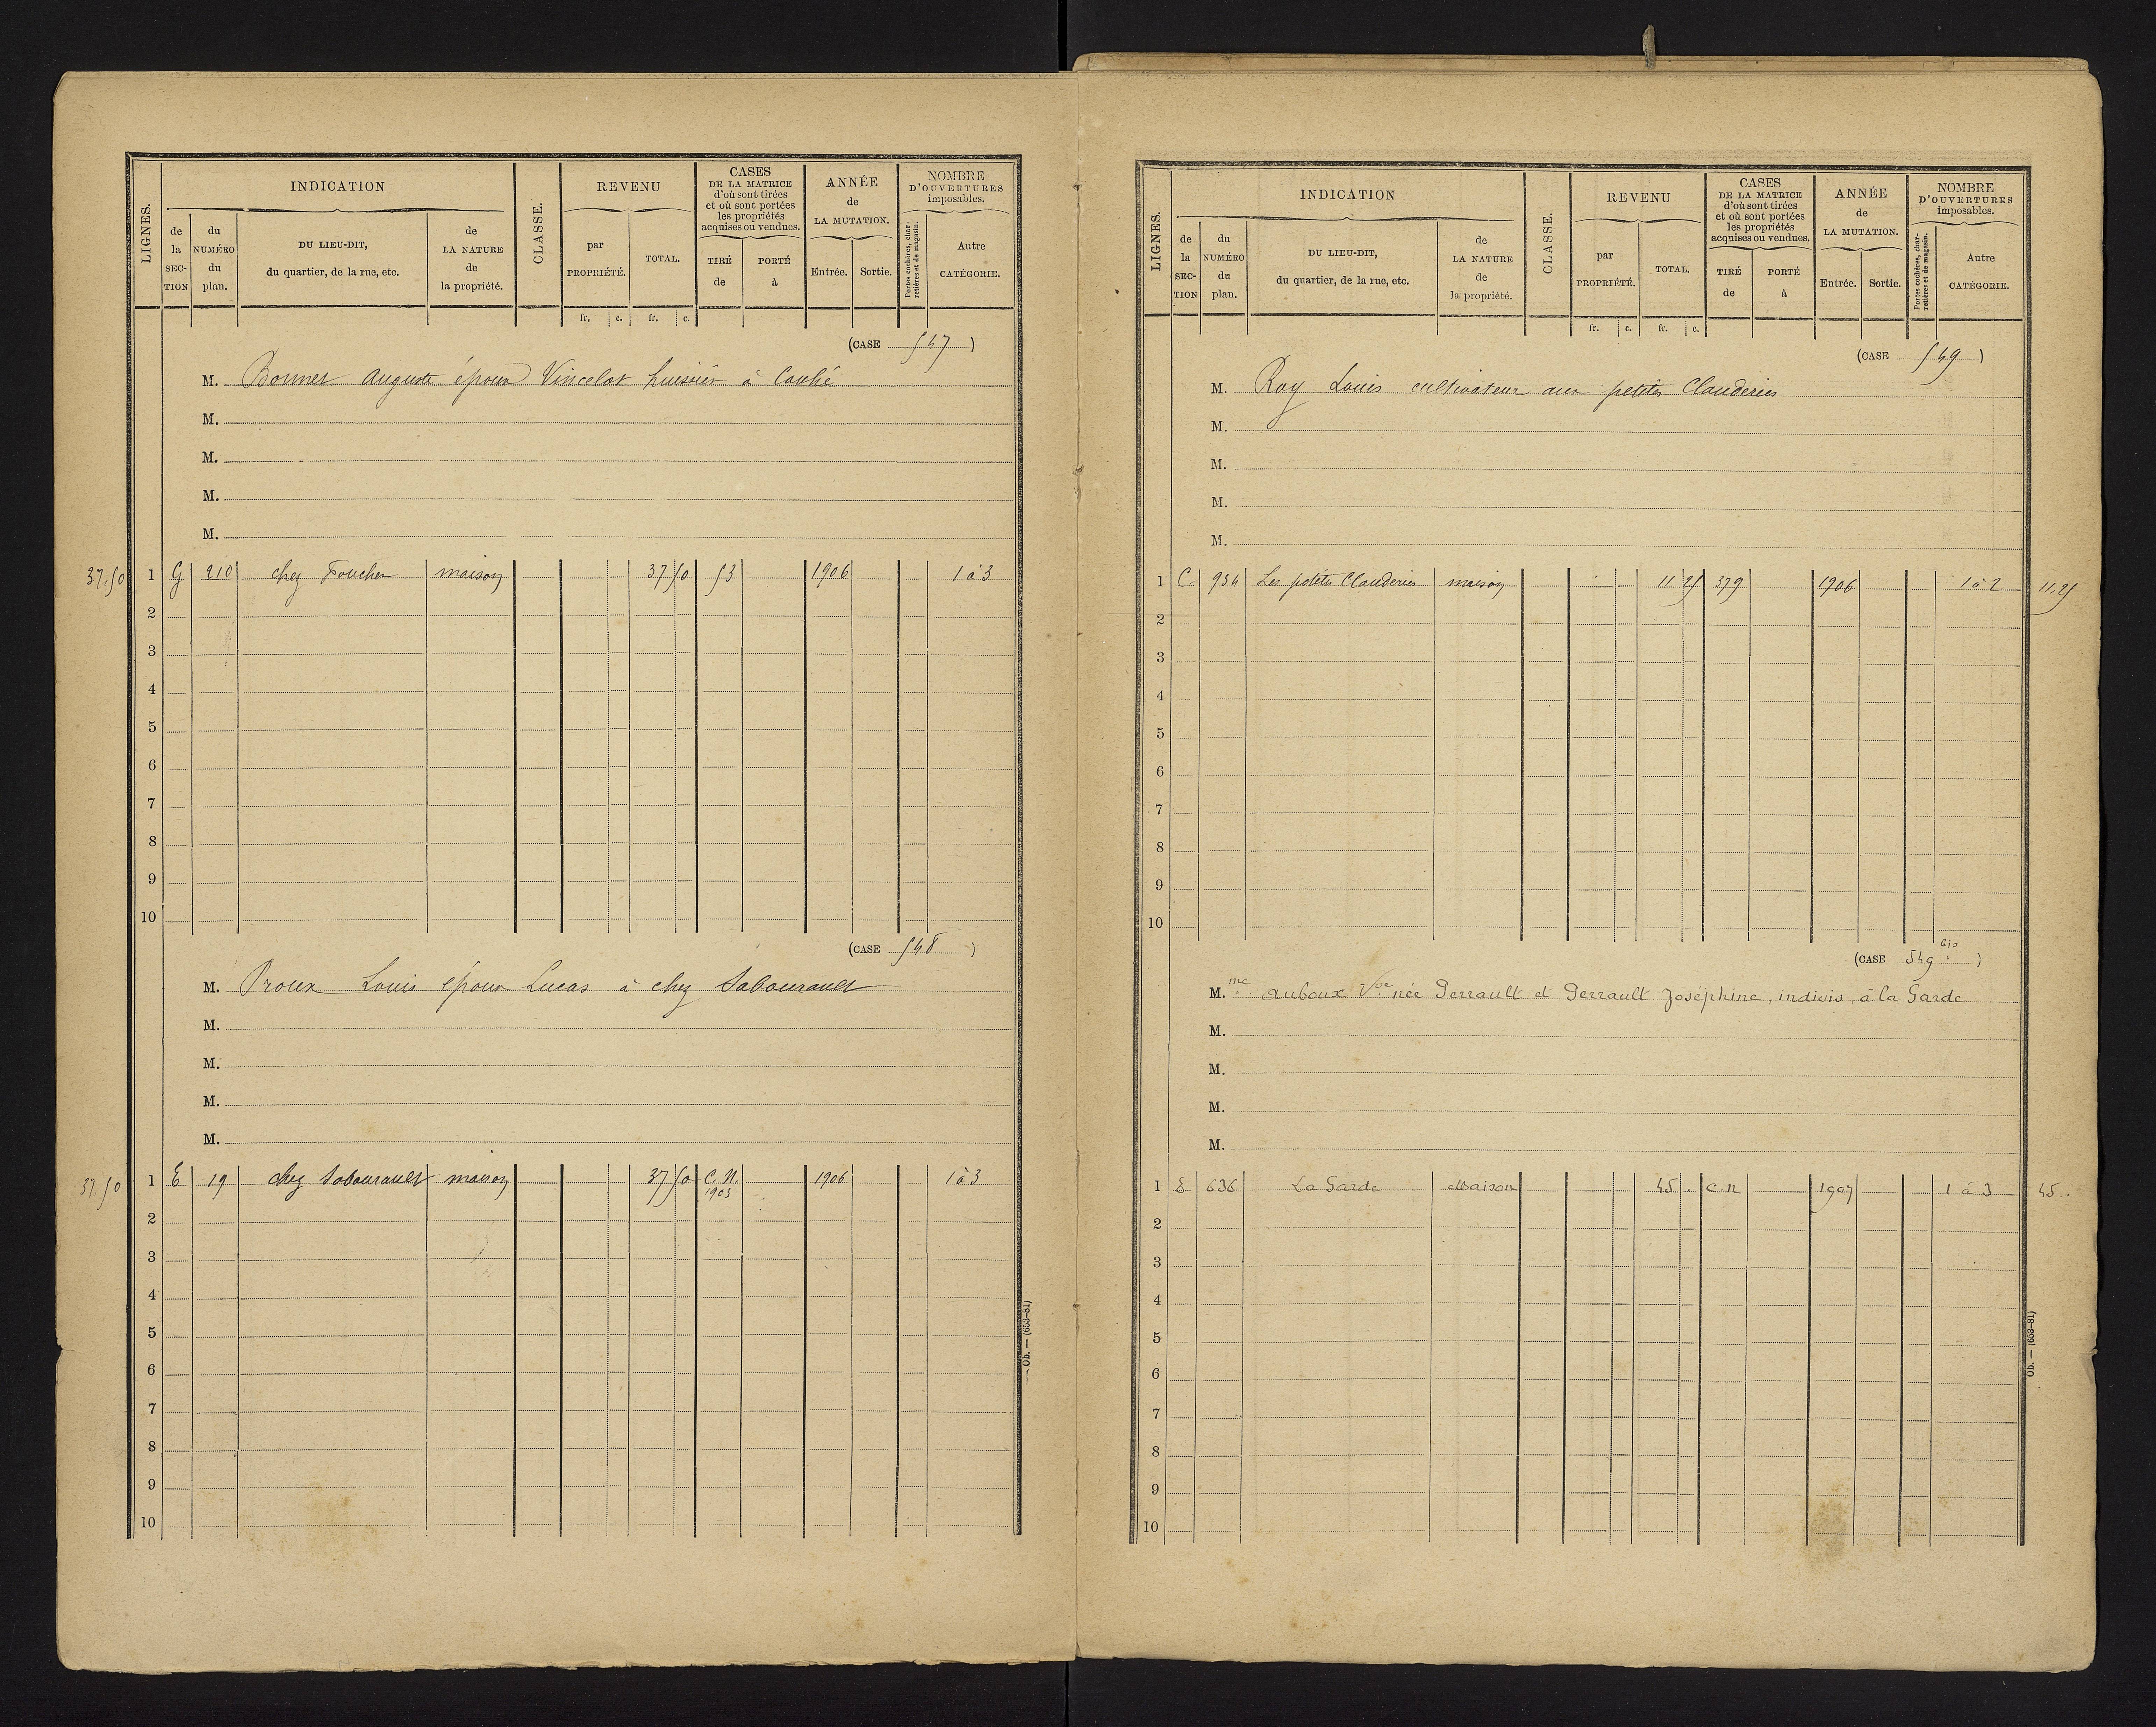 LIGNES.
INDICATION
de la SECTION
du NUMÉRO du plan.
DU LIEU-DIT, du quartier, de la rue, etc.
de LA NATURE de la propriété.
CLASSE.
REVENU
par PROPRIÉTÉ.
TOTAL.
CASES DE LA MATRICE d'où sont tirées et où sont portées les propriétés acquises ou vendues.
TIRÉ de
PORTÉ à
ANNÉE de LA MUTATION.
Entrée.
Sortie.
NOMBRE D'OUVERTURES imposables.
Portes cochères, charretières et de magasin.
Autre CATÉGORIE.
fr. c. fr. c.
(CASE 547)
M. Bonnet Auguste époux Vincelot huissier à Couhé
M.
M.
M.
M.
37.50 1 G 210 chez Foucher maison 37 50 53 1906 1 à 3
2
3
4
5
6
7
8
9
10
(CASE 548)
M. Proux Louis époux Lucas à chez Sabourault
M.
M.
M.
M.
37.50 1 E 19 chez Sabourault maison 37 50 C.N. 1903 1906 1 à 3
2
3
4
5
6
7
8
9
10
Ob. — (653-81)
LIGNES.
INDICATION
de la SECTION
du NUMÉRO du plan.
DU LIEU-DIT, du quartier, de la rue, etc.
de LA NATURE de la propriété.
CLASSE.
REVENU
par PROPRIÉTÉ.
TOTAL.
CASES DE LA MATRICE d'où sont tirées et où sont portées les propriétés acquises ou vendues.
TIRÉ de
PORTÉ à
ANNÉE de LA MUTATION.
Entrée.
Sortie.
NOMBRE D'OUVERTURES imposables.
Portes cochères, charretières et de magasin.
Autre CATÉGORIE.
fr. c. fr. c.
(CASE 549)
M. Roy Louis cultivateur aux petites Clauderies
M.
M.
M.
M.
1 C 934 Les petites Clauderies maison 11 25 379 1906 1 à 2 11.25
2
3
4
5
6
7
8
9
10
(CASE 549 bis)
M.me Auboux Vve née Perrault et Perrault Joséphine, indivis, à la Garde
M.
M.
M.
M.
1 E 636 La Garde Maison 45 . C.N 1907 1 à 3 45.
2
3
4
5
6
7
8
9
10
Ob. — (653-81)